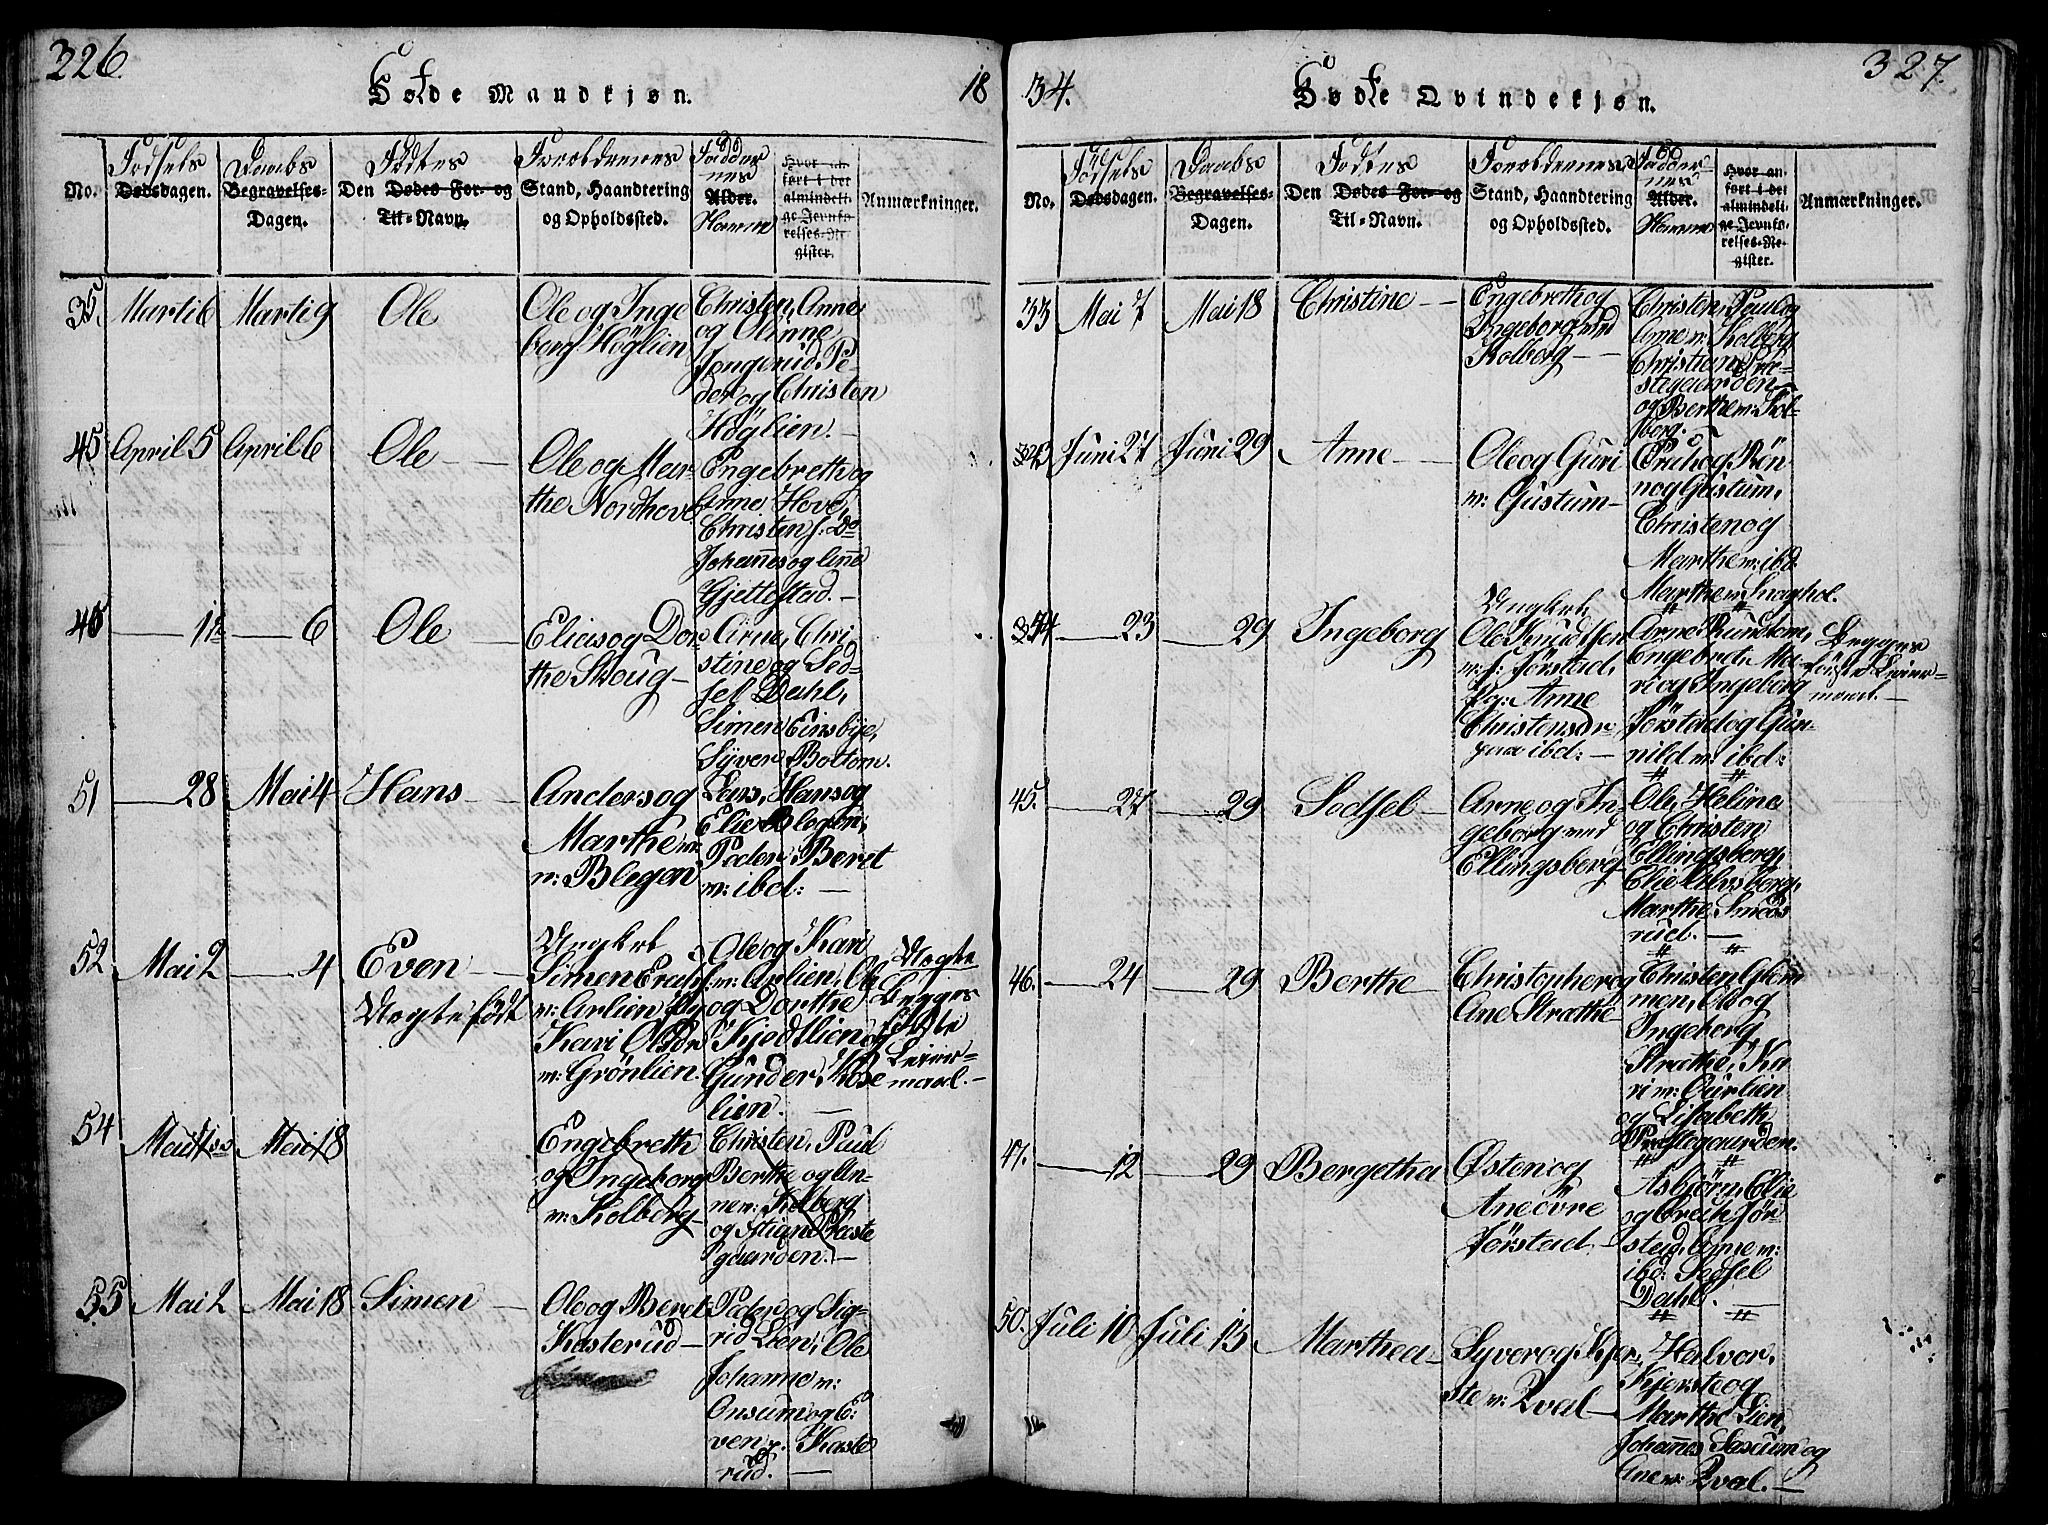 326.
Fødde Mandkjøn.
18
No.
Fødsels
Dødsdagen.
Daabs
Begravelses-
Dagen.
Fødtes
Den Dødes For- og
Til-Navn.
Forældrenes
Stand, Haandtering
og Opholdssted.
Fadder
nes
Alder.
Hvor an-
ført i det
almindeli-
ge Jevnfø-
relses-Re-
gister.
Anmærkninger.
35. Marti 6 Marti 9 Ole
Ole og Inge
borg Höglien
Christen, Anne
og Olinne
Jongerud, Pe-
der og Christen
Höglien.
45 April 5 April 6 Ole
Ole og Mar-
the Nordhove
Engebreth og
Anne Hove,
Christen f. Do
Johannes og Anne
Gjettestad.
46 6 Ole
Elias og Dor-
the Skoug
Arne, Chri-
stine og Sed-
sel Dahl,
Simen Einsbye,
Syver Boltom.
51 28 Mai 4 Hans
Anders og
Marthe
n: Blegen
Lars, Hans og
Elie Blegen,
Peder, Beret
m: ibd:
52. Mai 2 4 Even
Uægte født
Ungkrl
Simen Erichs.
m: Arlien
Kari Olsdr
m: Grönlien.
Ole og Kari
m: Arlien, Ole
og Dorthe
Kjodtlien og
Gunder Rose
lien.
Uægte
Begges
første
Leier-
maal.
54 Mai Mai 18
Engebreth
og Ingeborg
m: Kolberg
Christen, Paul
Berthe og An-
ne m: Kolberg
og Stian Præste
gaarden.
55 Mai 2 Mai 18 Simen
Ole og Beret
Kasterud
Peder og Sig-
rid Lien, Ole
Johanne m:
Onsum og E-
ven Kaste
rud.
34.
327.
Fødde Qvindekjøn.
No.
Fødsels
Dødsdagen.
Daabs
Begravelses-
Dagen.
Fødtes
Den Dødes For- og
Til-Navn.
Forældrenes
Stand, Haandtering
og Opholdssted.
Fadder-
nes
Alder.
Hvor an-
ført i det
almindeli-
ge Jevnfø-
relses-Re-
gister.
Anmærkninger.
33 Mai 7 Mai 18 Christine
Engebreth og
Ingeborg med
Kolberg
Christen, Paul og
Anne m: Kolberg
Christian Præ-
stegaarden
og Berthe m: Kol-
berg.
43 Juni 27 Juni 29 Anne
Ole og Guri
m: Gustum
Erich og Rön-
nog Gustum,
Christen og
Marthe m: ibd.
Marthe m:
44 23 29 Ingeborg
Ungkrl
Ole Knudtsen
m: f: Jörstad,
Pg: Anne
Christensdr
ibd:
Arne Rundtom,
Engebret, Ma-
ri og Ingeborg
Jörstad og Gun-
nild m: ibd:
Begges
første Leier-
maal.
45. 27 29 Sedsel
Arne og In-
geborg med
Ellingsberg
Ole, Heline
og Christen
Ellingsberg,
Elie Ulvsberg,
Marthe Smeds
rud.
46. 24 29 Berthe
Christopher og
Ane Stræthe
Christen Glem
men, Ole og
Ingeborg
Strathe, Ka
ri m: Ourlien
og Lisabeth
Præstegaarden.
47. 12 29 Bergetha
Østen og
Ane övre
Jörstad
Asbjørn, Elie
og Erich Jör-
stad, Anne m:
ibd: Sedsel
Dahl.
50. Juli 10 Juli 13 Marthea
Syver og Kjer-
ste m: Qval
Halvor,
Kjerste og
Marthe Lien,
Johannes Saxum og
Ane m: Qval.